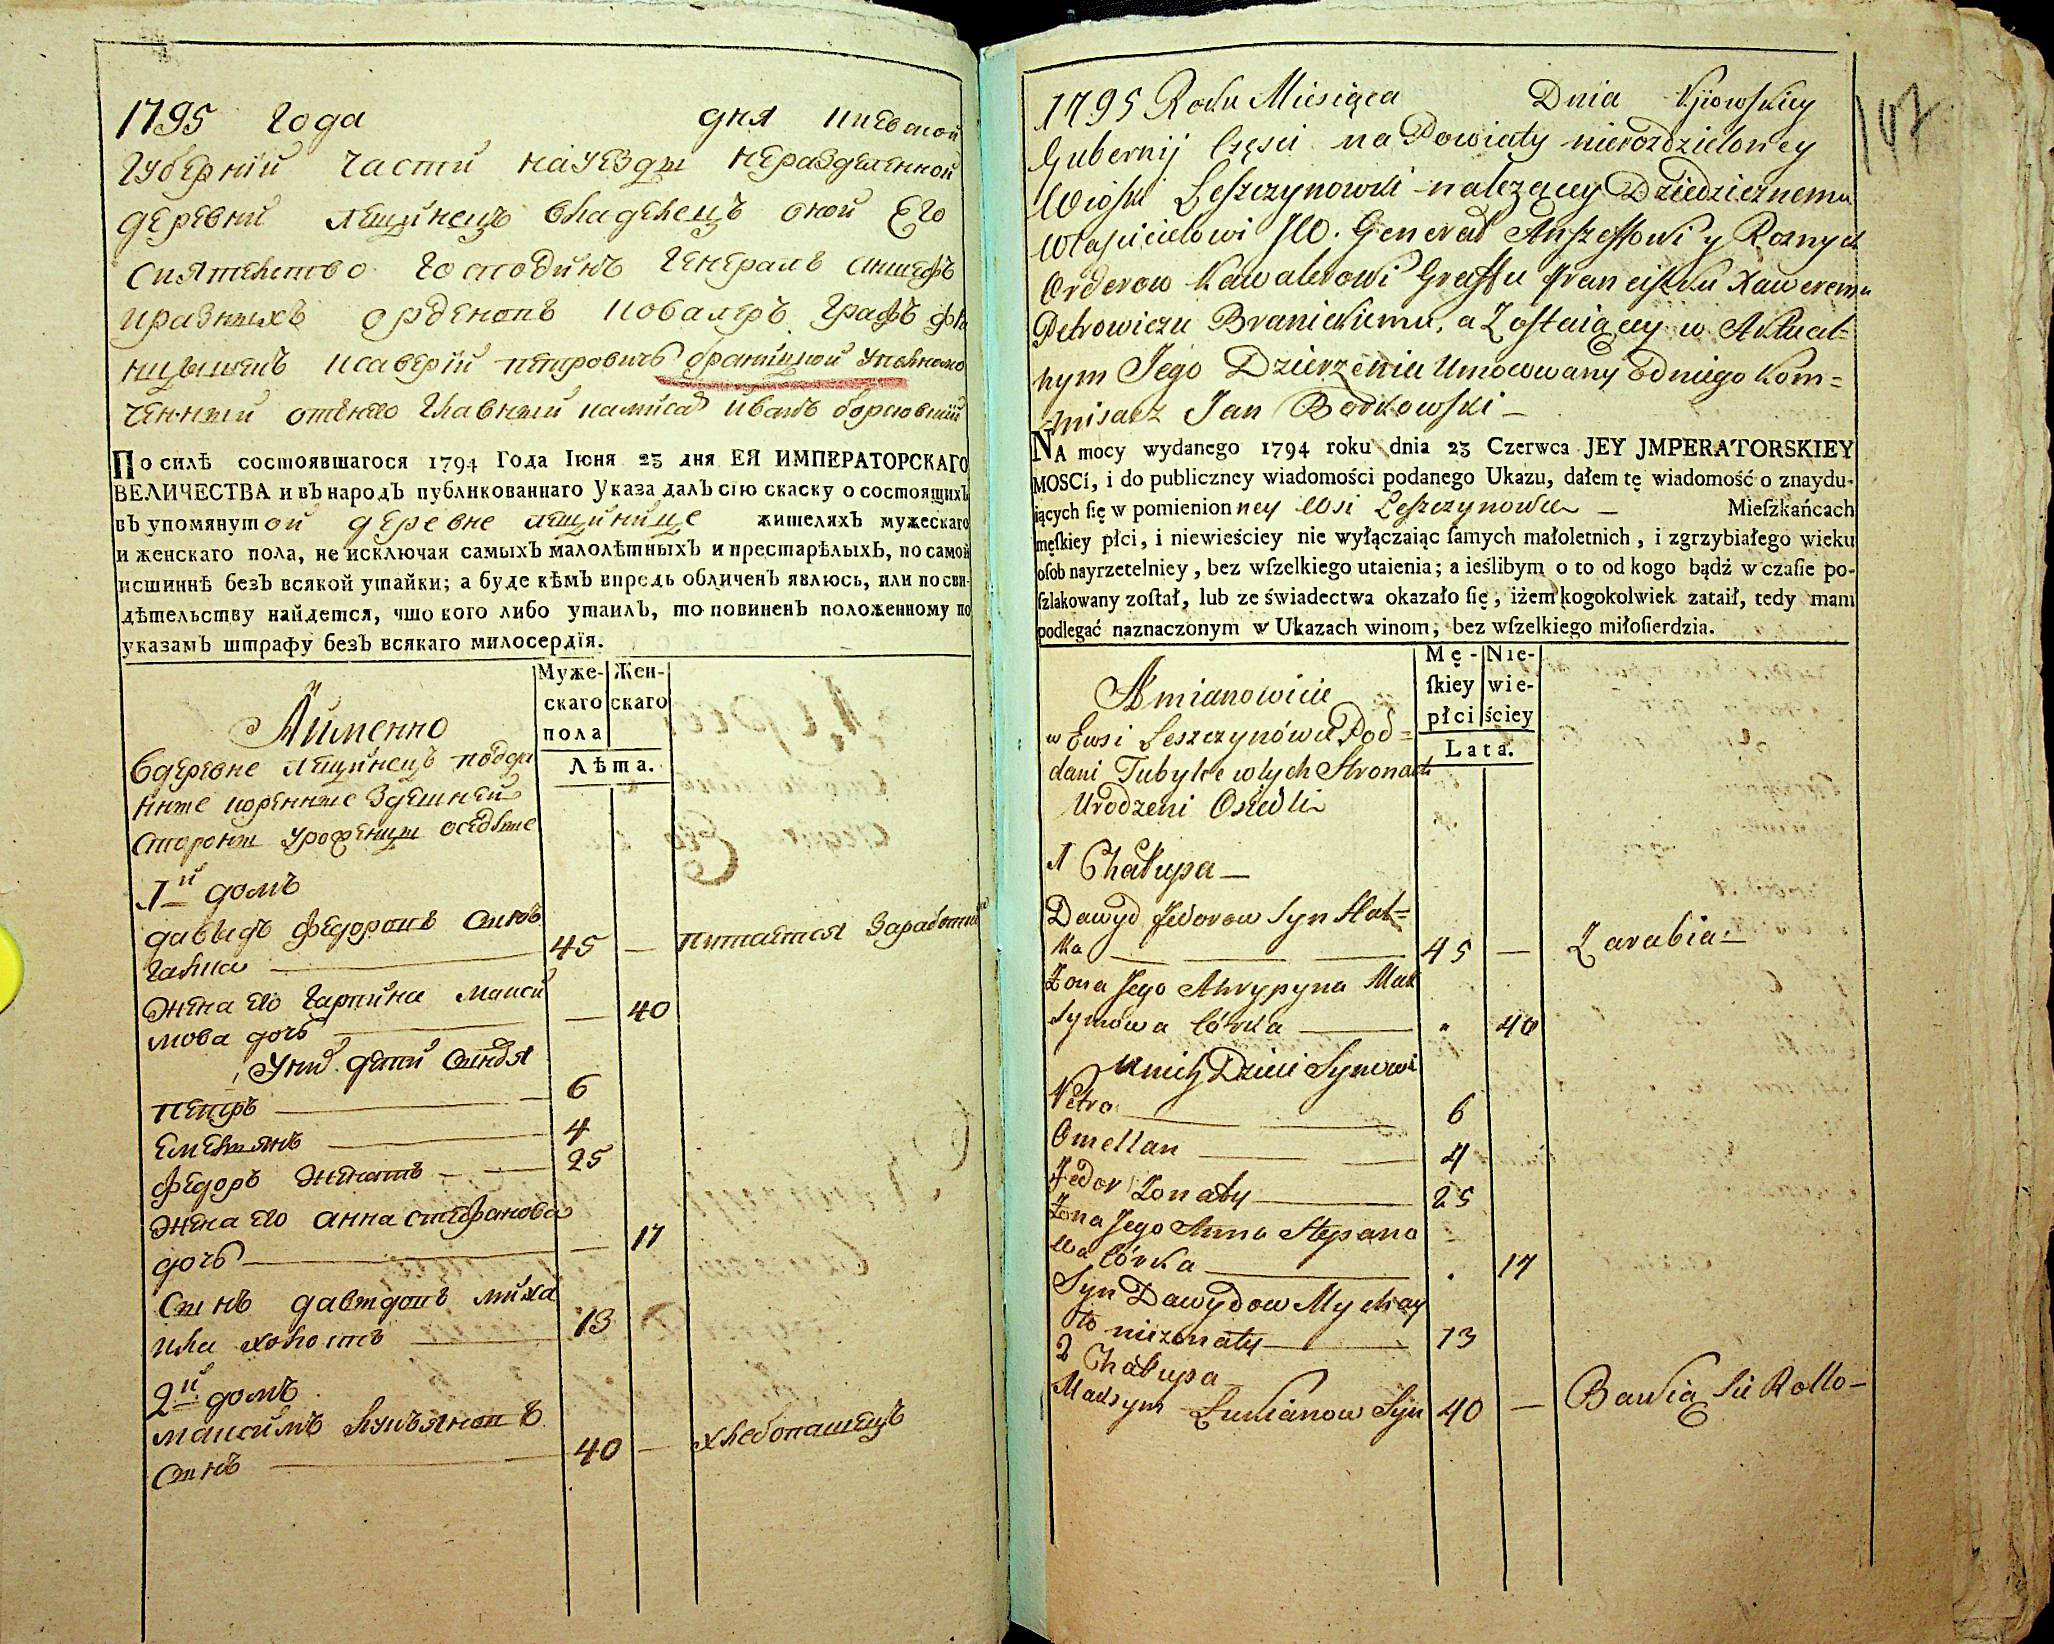 1795 Года дня Киевской
Губернïи части науезды неразделенной
деревни Лещинецъ владелецъ оной Его
Сиятелство Господинъ Генералъ Аншефъ
иразныхъ орденовъ Ковалеръ Графъ фра
нцышекъ Ксаверïй петровичъ браницкой уполномо
ченный отънего Главный камисар Иванъ борковскïй
По силѣ состоявшагося 1794 Года Іюня 23 дня ЕЯ ИМПЕРАТОРСКАГО
ВЕЛИЧЕСТВА и въ народъ публикованнаго Указа далъ сїю скаску о состоящихъ
въ упомянутой деревне лещинице жителяхъ мужескаго
и женскаго пола, не исключая самыхъ малолѣтныхъ и престарѣлыхъ, по самой
истиннѣ безъ всякой утайки; а буде кѣмъ впредь обличенъ явлюсь, или по сви-
дѣтельству найдется, что кого либо утаилъ, то повиненъ положенному по
указамъ штрафу безъ всякаго милосердїя.
Муже- Жен-
скаго скаго
пола
Лѣта.
Аймѣнно
вдеревне лещинецъ подда
ные коренные здешней
стороны уроженцы оседлые
1й домъ
давыдъ федоровъ сынъ
галка 45 — питается заработки
жена его Гарпина макси
мова дочь — 40
Уних дети сыновя
петръ 6
емельянъ 4
федоръ женатъ 25
жена его анна стефанова
дочь — 17
сынъ давыдовъ миха
ила холостъ 13
2й домъ
максимъ лукьяновъ
сынъ 40 — хлебопашецъ
147
1795 Roku Miesiąca Dnia Kijowskiey
Gubernij Części na Powiaty nierozdzieloney
Wioski Leszczynowki należącey Dziedzicznemu
Właścicielowi JW. Generał Anszeffowi y Roznych
Orderow Kawalerowi Graffu Franciszku Xaweremu
Petrowiczu Branickiemu, a Zostaiącey w Aktual=
nym Jego Dzierzeniu Umocowany od niego Kom=
misarz Jan Borkowski —
NA mocy wydanego 1794 roku dnia 23 Czerwca JEY JMPERATORSKIEY
MOSCi, i do publiczney wiadomości podanego Ukazu, dałem tę wiadomość o znaydu-
iących ſię w pomienionney Wsi Leszczynowce — Mieſzkańcach
męſkiey płci, i niewieściey nie wyłączaiąc ſamych małoletnich, i zgrzybiałego wieku
oſob nayrzetelniey, bez wſzelkiego utaienia; a ieślibym o to od kogo bądź w czaſie po-
ſzlakowany zoſtał, lub ze świadectwa okazało ſię, iżem kogokolwiek zataił, tedy mam
podlegać naznaczonym w Ukazach winom, bez wſzelkiego miłoſierdzia.
Mę- Nie-
ſkiey wie-
płci ściey
Lata.
Amianowicie
w Ewsi Leszczynówce Pod=
dani Tubylce w tych Stronach
Urodzeni Osiedli
1 Chałupa —
Dawyd Fedorow Syn Hał=
ka 45 — Zarabia —
Zona Jego Ahrypyna Mak
symowa Córka „ 40
U nich Dzieci Synowi
Petro 6
Omellan 4
Fedor Zonaty 25
Zona Jego Anna Stepano
wa Córka . 17
Syn Dawydow Mychay
ło niezonaty 13
2 Chałupa —
Maksym Łukianow Syn 40 — Bawią Sie Rollo —